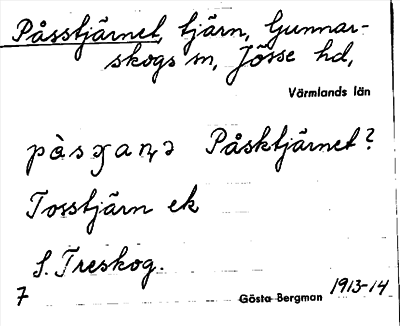 Påsstjärnet, tjärn, Gunnar-
skogs sn, Jösse hd,
Värmlands län
Påsktjärnet?
Tosstjärn ek
S. Treskog.
7 Gösta Bergman 1913-14